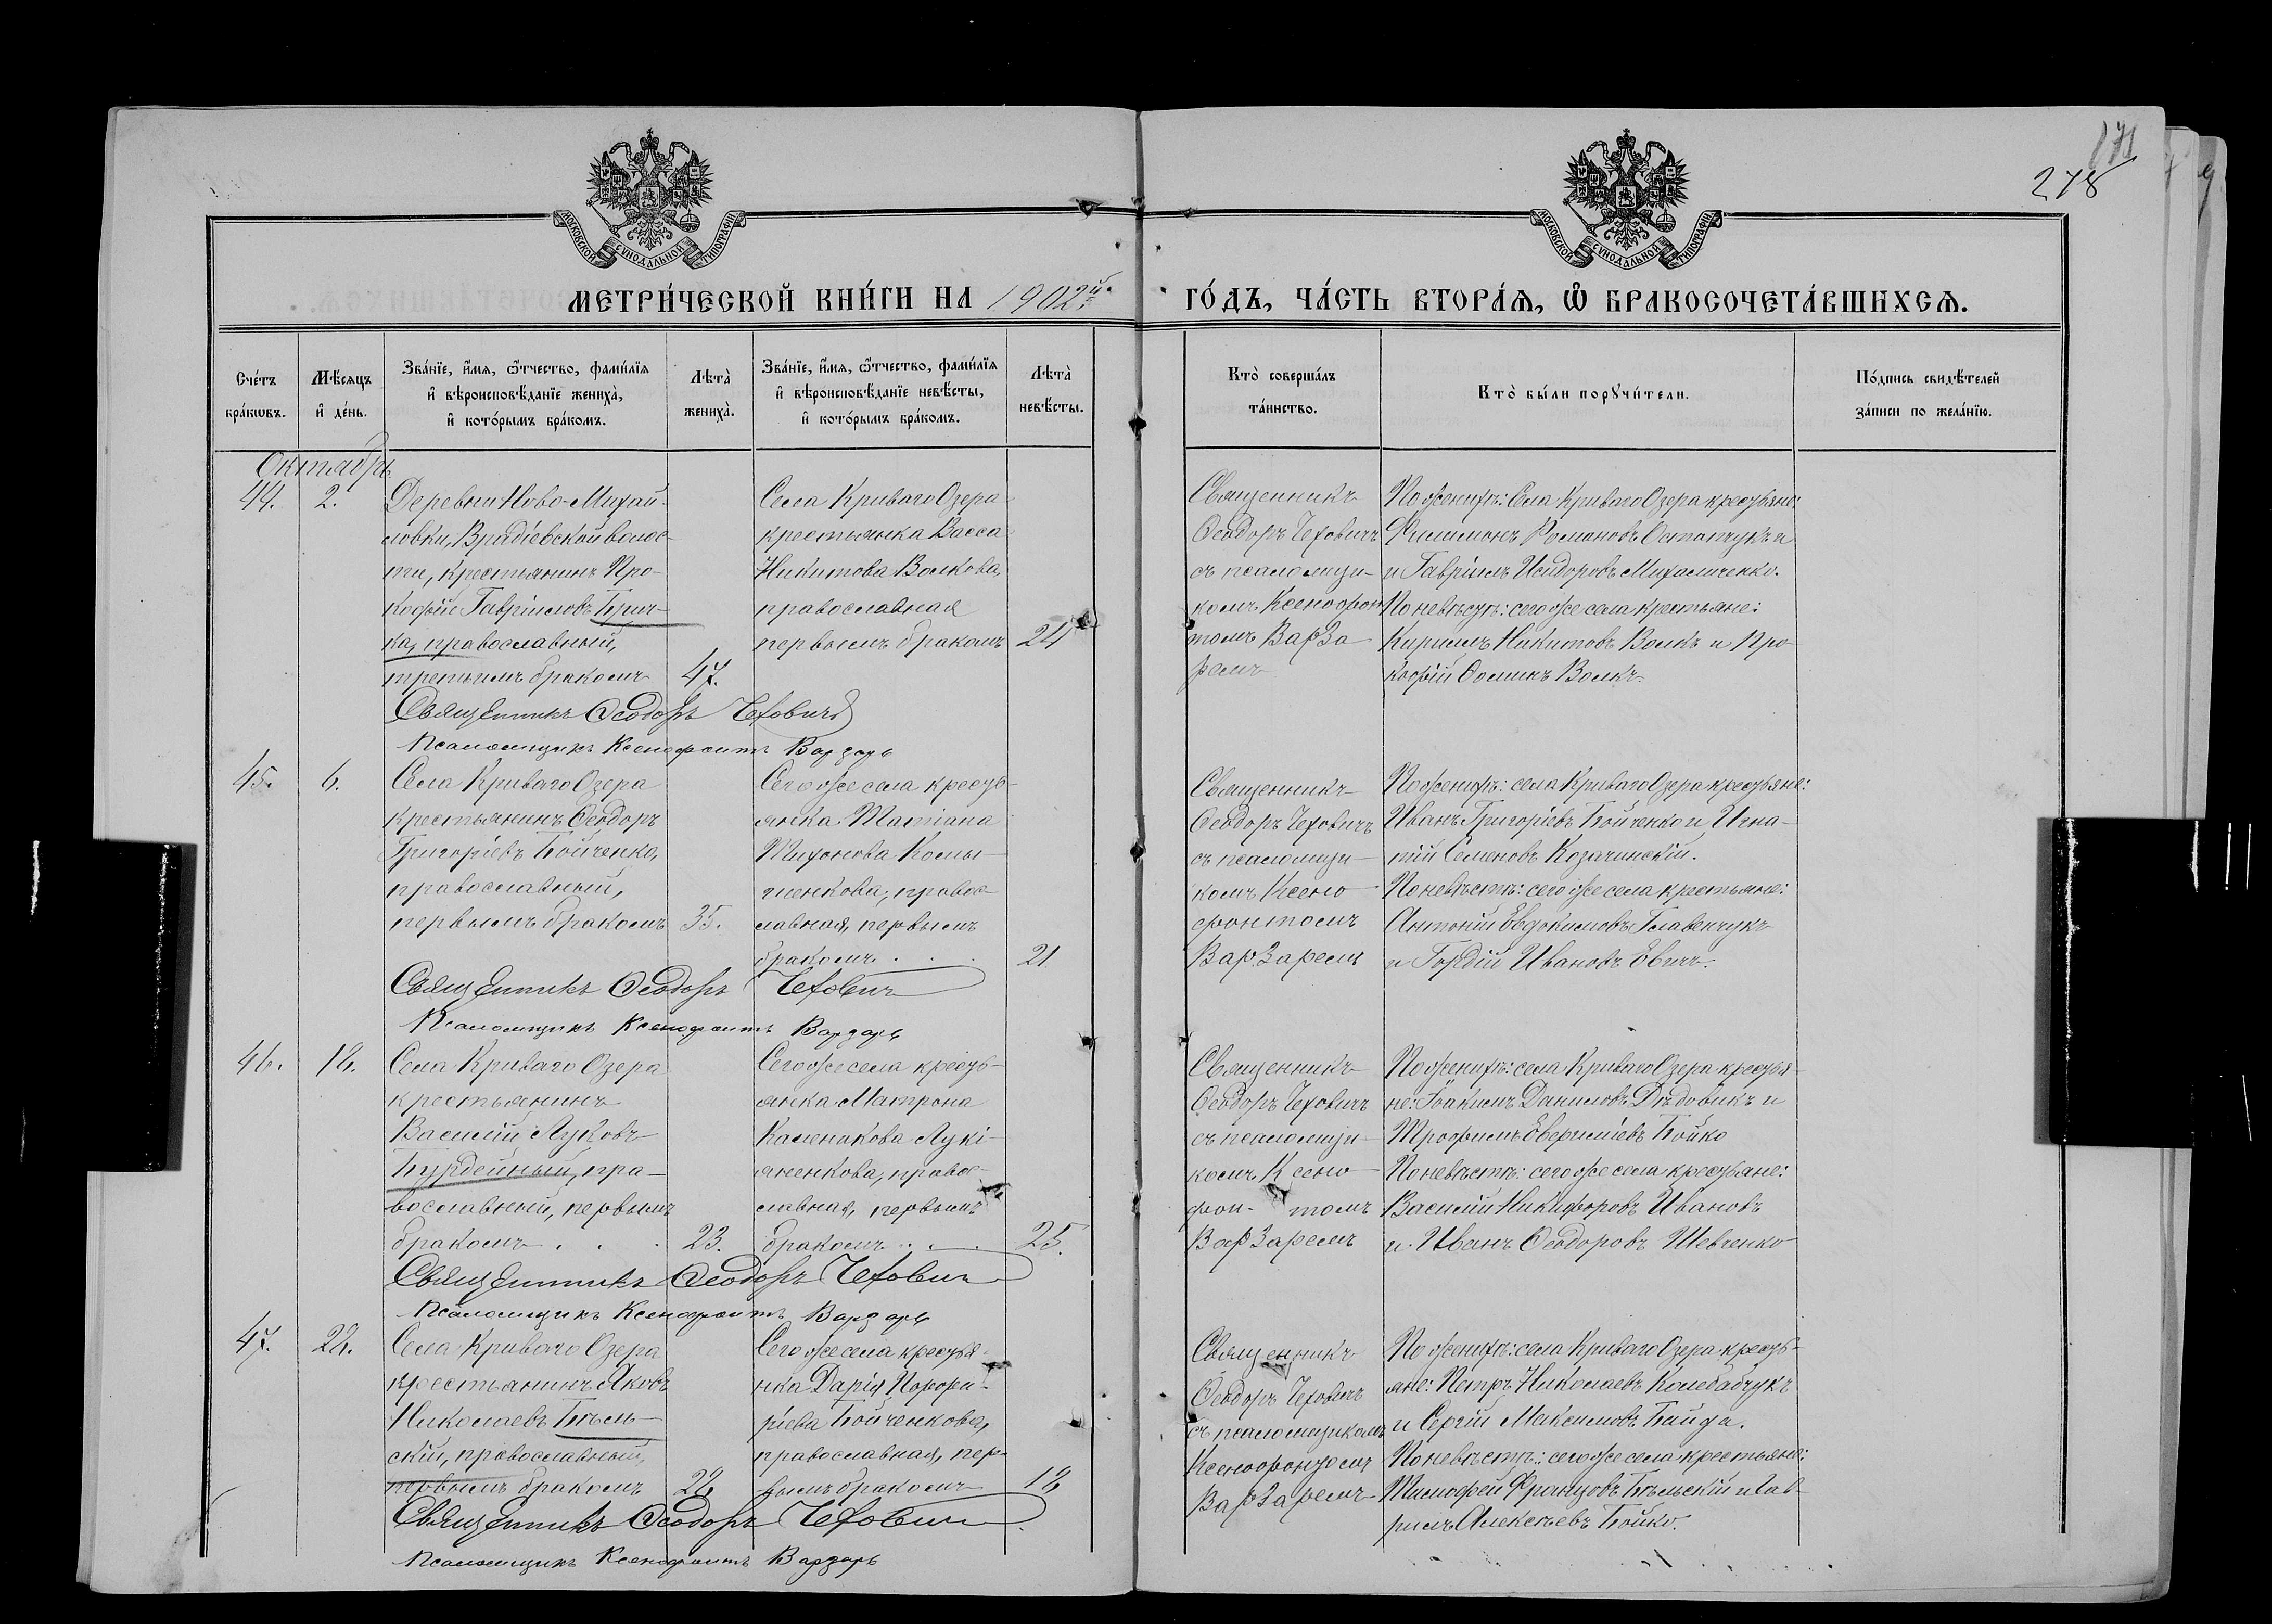 171
278
МОСКОВСКОЙ СУНОДАЛЬНОЙ ТИПОГРАФІИ
МОСКОВСКОЙ СУНОДАЛЬНОЙ ТИПОГРАФІИ
МЕТРИ́ЧЕСКОЙ КНИ́ГИ НА 1902й
ГО́ДЪ, ЧА́СТЬ ВТОРА́Я, Ѿ БРАКОСОЧЕТА́ВШИХСЯ.
Сче́тъ
бра́кѡвъ.
Мѣ́сяцъ
и҆ де́нь.
Зва́нїе, и҆́мя, ѻ҆́тчество, фами́лїя
и҆ вѣроисповѣ́данїе жениха̀,
и҆ кото́рымъ бра́комъ.
Лѣта̀
жениха̀.
Зва́нїе, и҆́мя, ѻ҆́тчество, фами́лїя
и҆ вѣроисповѣ́данїе невѣ́сты,
и҆ кото́рымъ бра́комъ.
Лѣта̀
невѣ́сты.
Кто̀ соверша́лъ
та́инство.
Кто̀ бы́ли порꙋчи́тели.
По́дпись свидѣ́телей
за́писи по жела́нїю.
Октябрь
44.
2.
Деревни Ново-Михай-
ловки, Врадіевской волос-
ти, крестьянинъ Про-
кофій Гавріиловъ Брич-
ка, православный,
третьимъ бракомъ
47.
Села Криваго Озера
крестьянка Васса
Никитова Волкова,
православная
первымъ бракомъ
24
Священникъ
Ѳеодоръ Чеховичъ
съ псаломщи-
комъ Ксенофон
томъ Варза
ремъ
По женихѣ: Села Криваго Озера крестьяне:
Филимонъ Романовъ Остапчукъ и
и Гавріилъ Исидоровъ Михаличенко.
По невѣстѣ: сего же села крестьяне:
Кириллъ Никитовъ Волкъ и Про
кофій Ѳоминъ Волкъ.
Священникъ Ѳеодоръ Чеховичъ
Псаломщикъ Ксенофонтъ Варзарь
45.
6.
Села Криваго Озера
крестьянинъ Ѳеодоръ
Григоріевъ Бойченко,
православный,
первымъ бракомъ
35.
Сего же села кресть-
янка Татіана
Тихонова
православ-
лавная, первымъ
бракомъ . . .
21.
Священникъ
Ѳеодоръ Чеховичъ
съ псаломщи-
комъ Ксено
фонтомъ
Варзаремъ
По женихѣ: села Криваго Озера крестьяне:
Иванъ Григоріевъ Бойченко и Игна-
тій Семеновъ Козачинскій.
По невѣстѣ: сего же села крестьяне:
Антоній Евдокимовъ Главенчукъ
и Гордій Ивановъ
Священникъ Ѳеодоръ Чеховичъ
Псаломщикъ Ксенофонтъ Варзарь
46.
Села Криваго Озера
крестьянинъ
Василій Луковъ
Бурдейный, пра-
вославный, первымъ
бракомъ . . .
23.
Сего же села кресть-
янка Матрона
Лукі-
яненкова, правос-
лавная, первымъ
бракомъ . . .
25.
Священникъ
Ѳеодоръ Чеховичъ
съ псаломщи-
комъ Ксено
фон- томъ
Варзаремъ
По женихѣ: села Криваго Озера крестья-
не: Іоакимъ Даниловъ Дѣдовикъ и
Трофимъ Бойко
По невѣстѣ: сего же села крестьяне:
Василій Никифоровъ Ивановъ
и Иванъ Ѳеодоровъ Шевченко
Священникъ Ѳеодоръ Чеховичъ
Псаломщикъ Ксенофонтъ Варзарь
47.
Села Криваго Озера
крестьянинъ Яковъ
Николаевъ Бѣль-
скій, православный,
первымъ бракомъ
Сего же села крестья-
нка Дарія Порфи-
ріева Бойченкова,
православная, пер-
вымъ бракомъ
18
Священникъ
Ѳеодоръ Чеховичъ
съ псаломщикомъ
Ксенофонтомъ
Варзаремъ
По женихѣ: села Криваго Озера кресть-
яне: Петръ Николаевъ Колебабчукъ
и Сергій Максимовъ Байда.
По невѣстѣ: сего же села крестьяне:
Тимофей Францовъ Бѣльскій и Гав-
риилъ Алексѣевъ Бойко.
Священникъ Ѳеодоръ Чеховичъ
Псаломщикъ Ксенофонтъ Варзарь